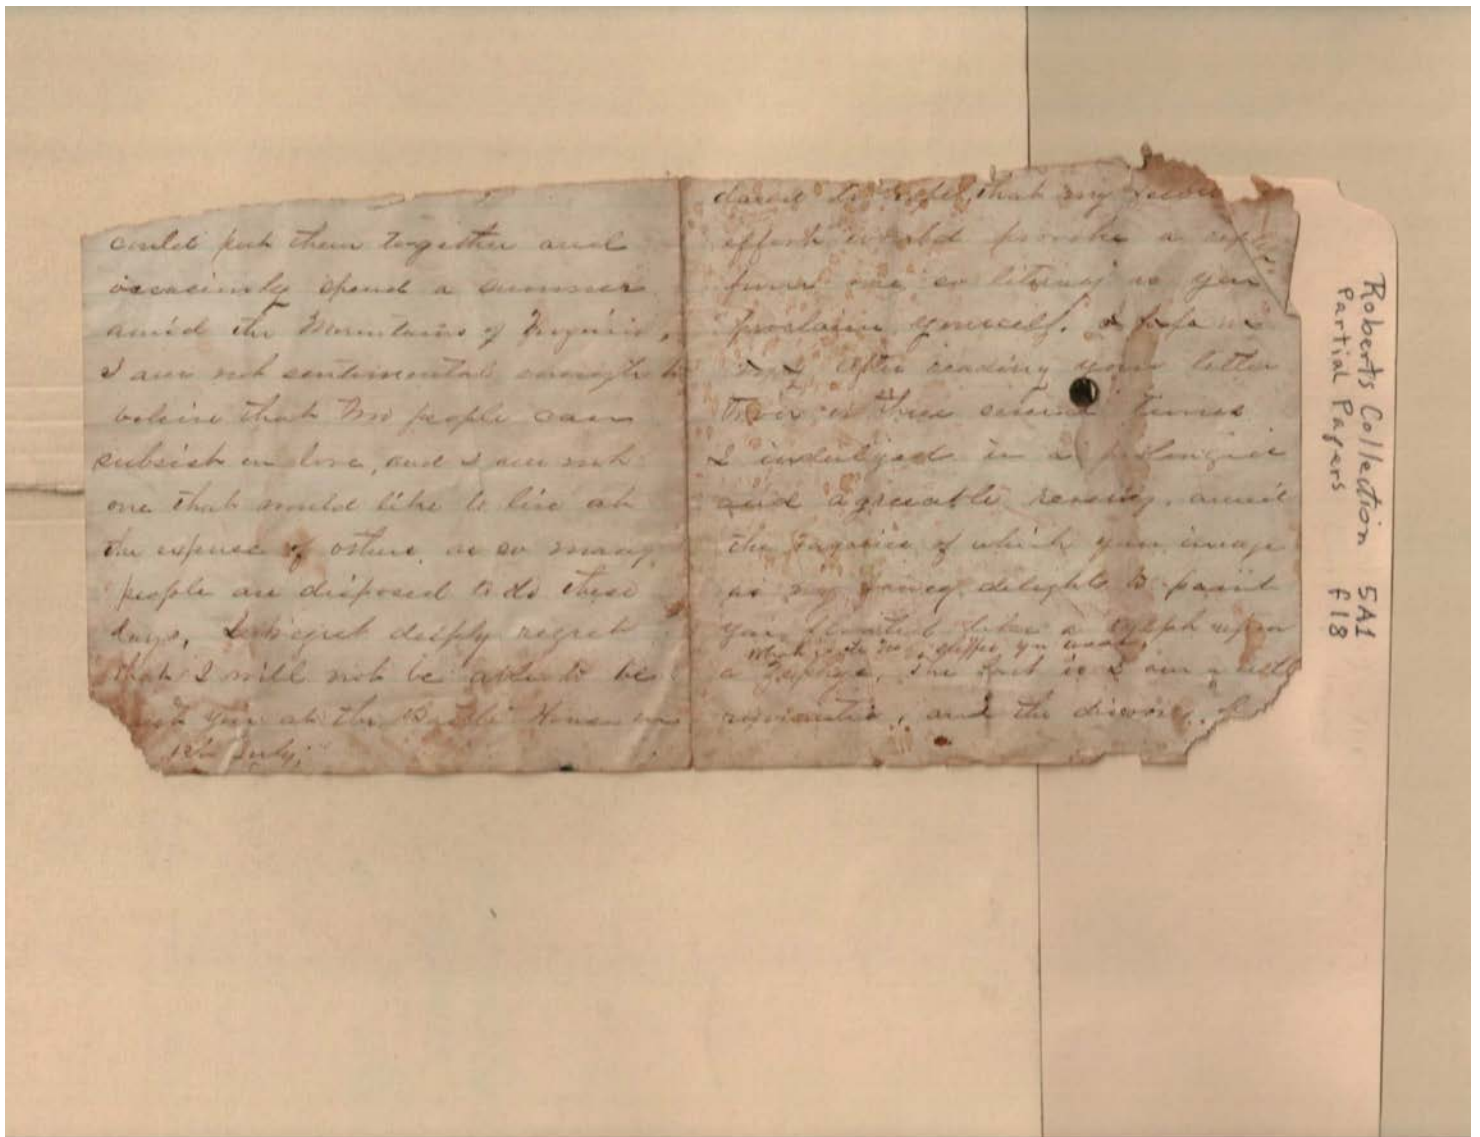 could put them together and
occasionly spend a summer
amid the Mountains of Virginia,
I am not sentimental enough to
believe that two people can
subsist on love, and I am not
one that would like to live at
the expense of others as so many
people are disposed to do these
days, I regret deeply regret
that I will not be able to be
with you at the Battle House on
12th July,
to hope, that my
effort would provoke a
from one so literary as you
proclaim yourself.
after reading your letter
over three several times
I indulged in a prolonged
and agreeable reverie, amid
the vagaries of which your image
as my fancy delights to paint
you floated like a nymph upon
what sorter on slipper you wear,
a Zephyr, The fact is I am
romantic, and the discovery of
Roberts Collection 5A1
Partial Papers f18